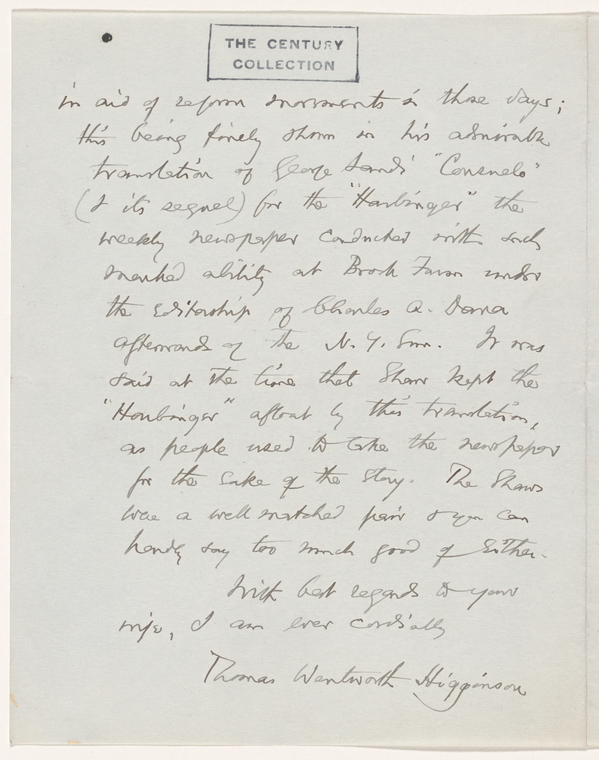 THE CENTURY
COLLECTION
in aid of reform movements in those days;
this being finely shown in his admirable
translation of George Sand's "Consuelo"
(& its sequel) for the "Harbinger" the
weekly newspaper conducted with such
marked ability at Brook Farm under
the Editorship of Charles A. Dana
afterwards of the N. Y. Sun. It was
said at the time that Shaw kept the
"Harbinger" afloat by this translation,
as people used to take the newspaper
for the sake of the story. The Shaws
were a well matched pair & you can
hardly say too much good of either.
With best regards to your
wife, I am ever cordially
Thomas Wentworth Higginson